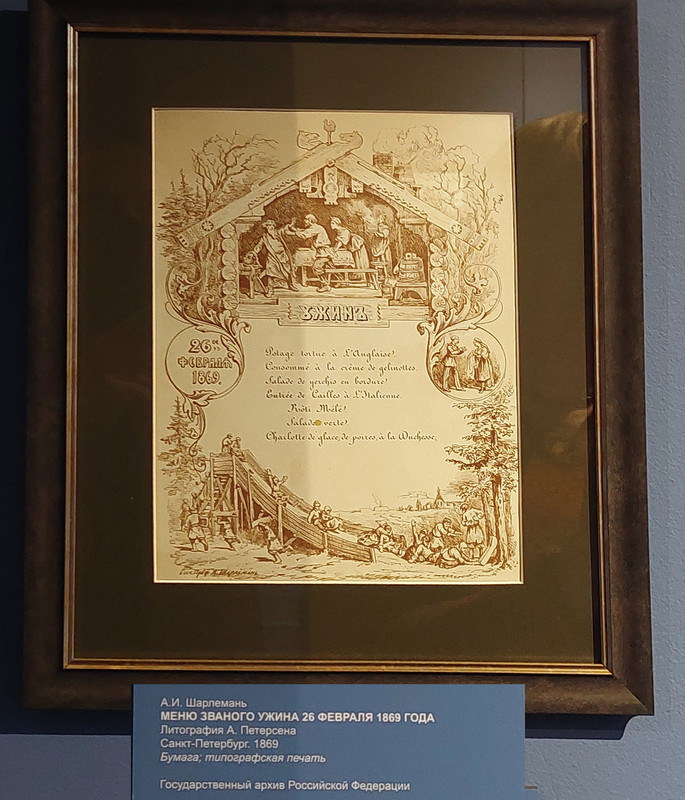 УЖИНЪ
26 ГО
ФЕВРАЛЯ
1869.
Potage tortue à L'Anglaise
Consommé à la crème de gelinottes.
Salade de yerchis en bordure
Entrée de Cailles à L'Italienne.
Rôti Mêlé
Salade verte
Charlotte de glace, de poires, à la Duchesse,
А.И. Шарлемань
МЕНЮ ЗВАНОГО УЖИНА 26 ФЕВРАЛЯ 1869 ГОДА
Литография А. Петерсена
Санкт-Петербург. 1869
Бумага; типографская печать
Государственный архив Российской Федерации